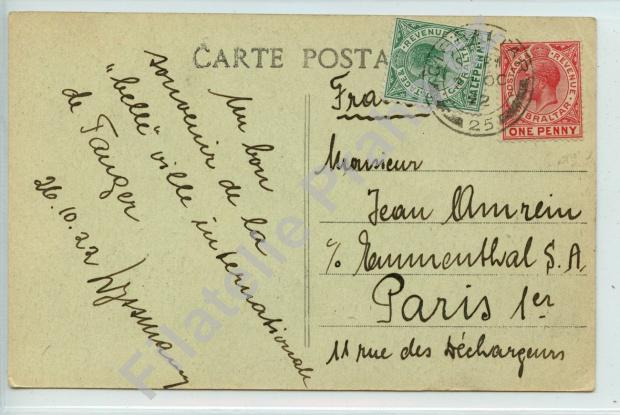 CARTE POSTA
Un bon
souvenir de la
"belle" ville internationale
de Tanger
26.10.22
France
Monsieur
Jean Amrein
℅ Emmenthal S.A.
Paris 1er
11 rue des Déchargeurs
POSTAGE REVENUE
GIBRALTAR
ONE PENNY
REVENUE
HALFPENNY
25
Filatelie